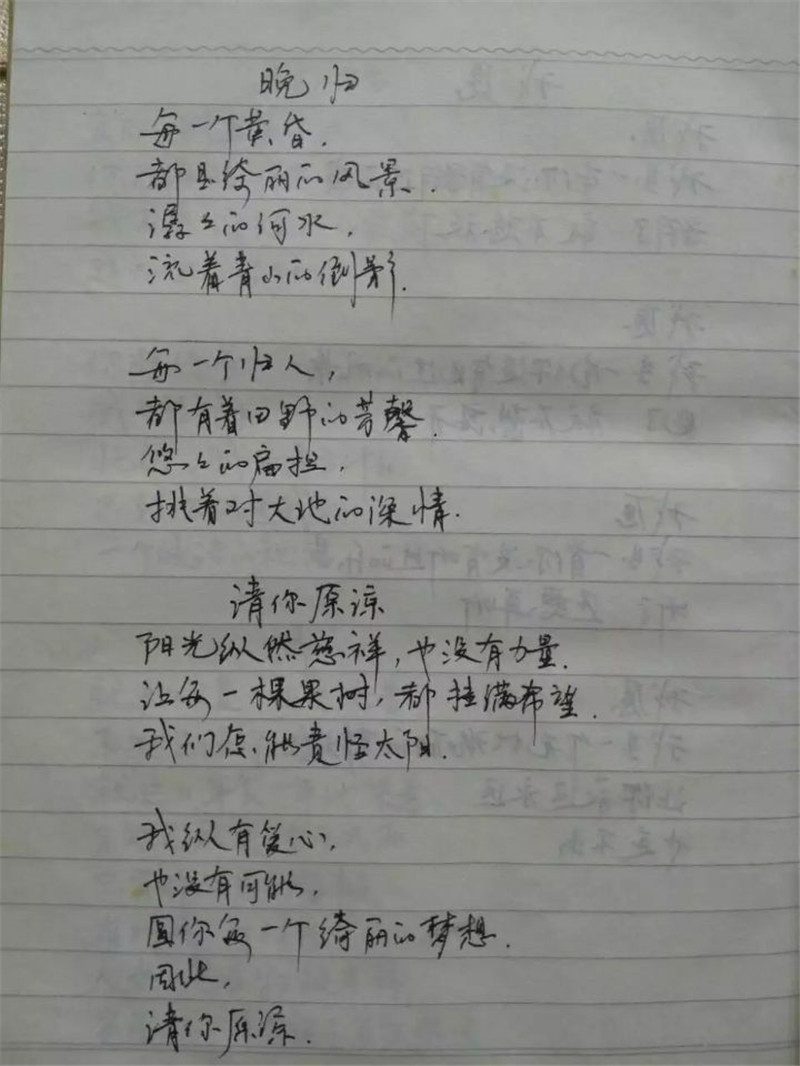 晚归
每一个黄昏.
都是绮丽的风景.
潺々的河水,
流着青山的倒影.
每一个归人,
都有着田野的芳馨.
悠々的扁担,
挑着对大地的深情.
请你原谅
阳光纵然慈祥,也没有力量.
让每一棵果树,都挂满希望.
我们怎能责怪太阳.
我纵有爱心,
也没有可能,
圆你每一个绮丽的梦想.
因此,
请你原谅.